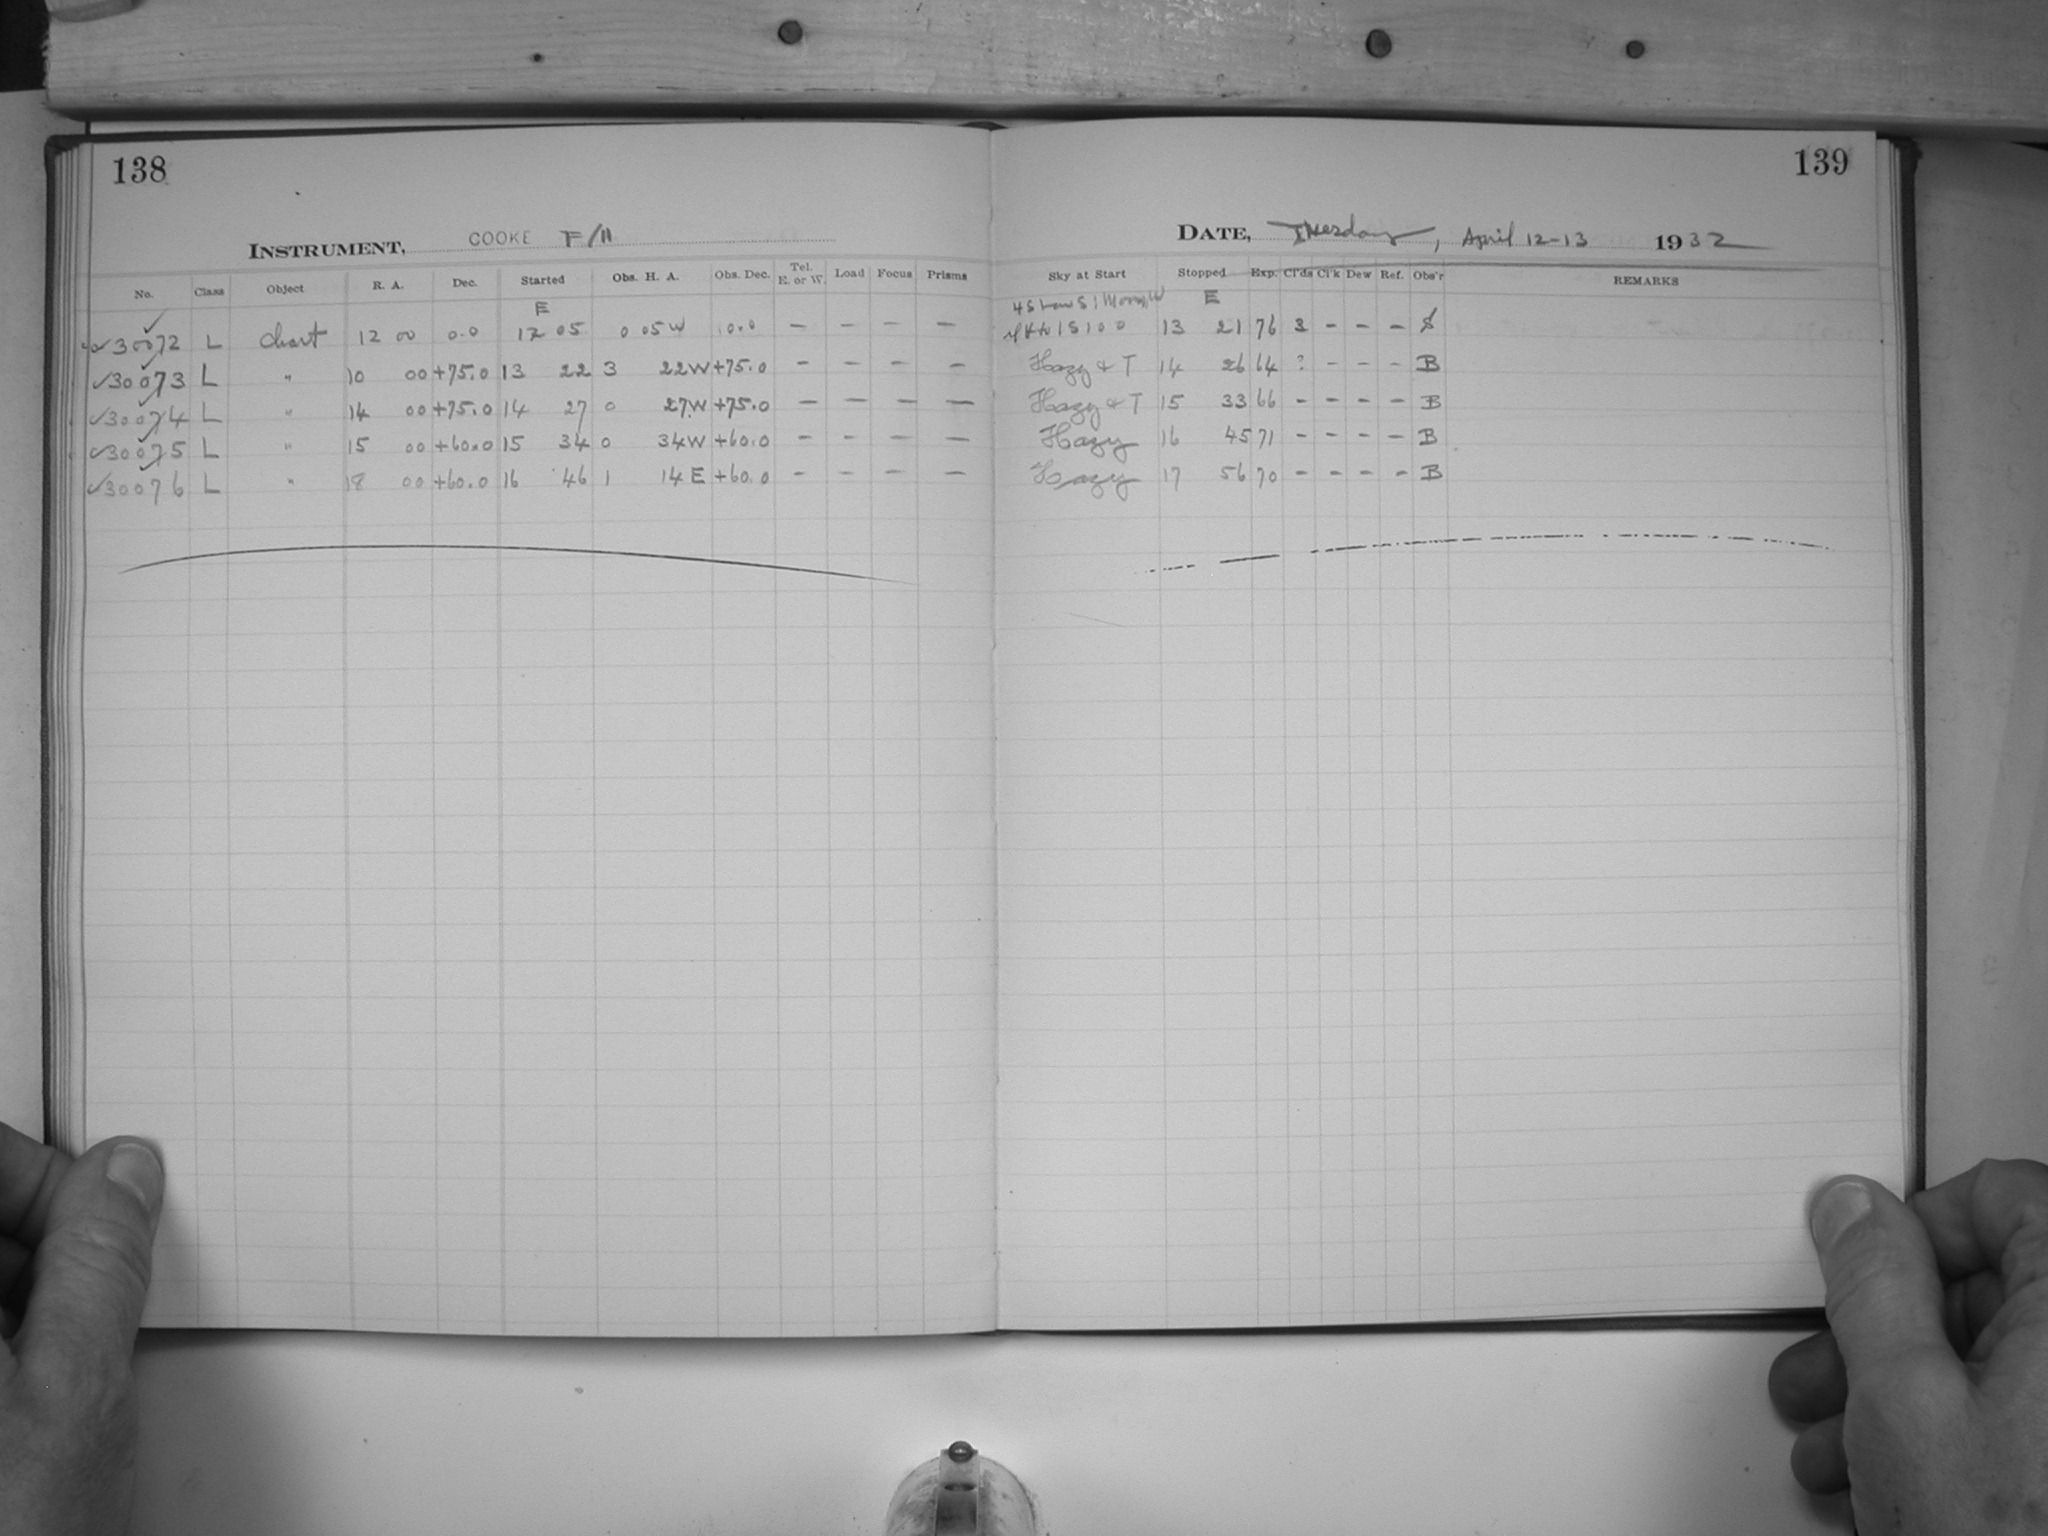 138
INSTRUMENT, COOKE F/11
No. Class Object R. A. Dec. Started Obs. H. A. Obs. Dec. Tel. E. or W. Load Focus Prisms
E
30072 L Chart 12 00 0.0 12 05 0 05 W 0.0 — — — —
30073 L " 10 00 +75.0 13 22 3 22W +75.0 — — — —
30074 L " 14 00 +75.0 14 27 0 27W +75.0 — — — —
30075 L " 15 00 +60.0 15 34 0 34W +60.0 — — — —
30076 L " 18 00 +60.0 16 46 1 14 E +60.0 — — — —
139
DATE, Tuesday, April 12-13 1932
Sky at Start Stopped Exp. Cl'ds Cl'k Dew Ref. Obs'r REMARKS
E
13 21 76 3 - - - S
Hazy & T 14 26 64 ? - - - B
Hazy & T 15 33 66 - - - - B
Hazy 16 45 71 - - - - B
Hazy 17 56 70 - - - - B